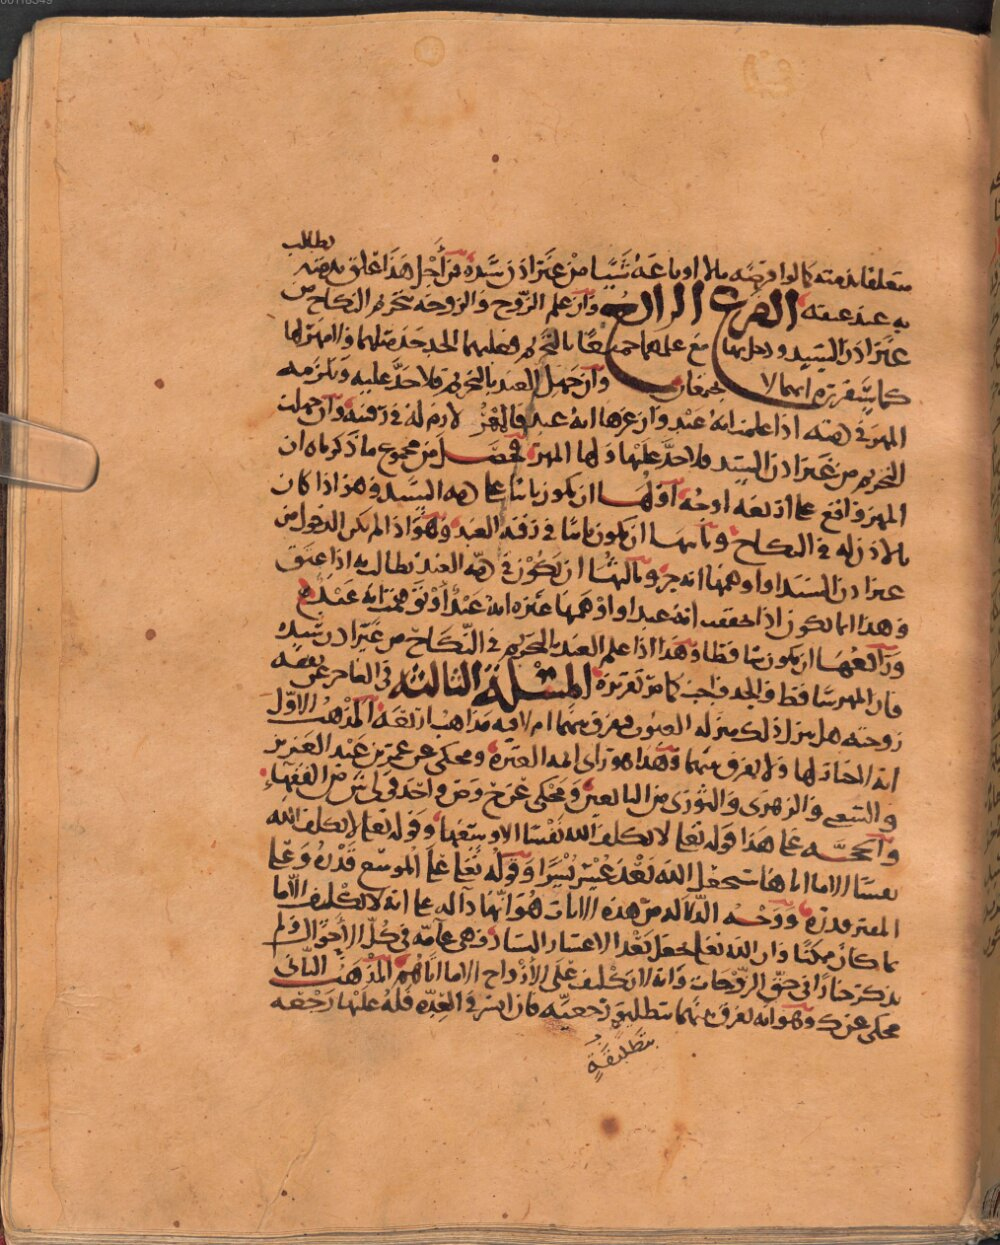 يطالب
متعلقا بذمته كما لو اقرضه مالا او باعه شيئا من غير اذن سيده فمن أجل هذا تعلق بذمته
به عند عتقه الفرع الرابع وان علم الزوج والزوجة تحريم النكاح من
غير اذن السيد ودخل بها مع علمهما جميعًا بالتحريم فعليهما الحد حده مثلهما والمهر لها
كما سنقرره انهما لا يجتمعان وان جهل العبد بالتحريم فلا حد عليه ويلزمه
المهر في ذمته اذا علمت انه عبد وان غرها انه عبد فالمهر لازم له في رقبته وان جهلت
التحريم من غير اذن السيد فلا حد عليها ولها المهر فحصل من مجموع ما ذكرناه ان
المهر واقع على اربعة اوجه اولها ان يكون ثابتا على ذمة السيد وهذا اذا كان
بالاذن له في النكاح وثانيها ان يكون ثابتا في رقبة العبد وهو اذا لم يكن الدخول من
غير اذن السيد او اوهمها انه حر وثالثها ان يكون في ذمة العبد يطالب به اذا عتق
وهذا انما يكون اذا تحققت انه عبد او اوهمها غيره انه عبد أو توهمت انه عبد
ورابعها ان يكون ساقطا وهذا اذا علم العبد التحريم في النكاح من غير اذن سيده
فان المهر ساقط والحد واجب كما مر تقريره المسئلة الثالثة في العاجز عن نفقة
زوجته هل ينزل ذلك منزلة العيوب فيفرق بينهما ام لا فيه مذاهب اربعة المذهب الاول
انه لا خيار لها ولا يفرق بينهما وهذا هو رأى ائمة العترة ومحكي عن عمر بن عبد العزيز
والشعبي والزهرى والثورى من التابعين ومحكى عن ح وص واحد قولي ش من الفقهاء
والحجة على هذا قوله تعالى لا يكلف الله نفسًا الا وسعها وقوله تعالى لا يكلف الله
نفسًا الا ما اتاها سيجعل الله بعد عسر يسرًا وقوله تعالى على الموسع قدره وعلى
المقتر قدره ووجه الدلالة من هذه الايات هو انها دالة على انه لا تكليف الا ما
ما كان ممكنًا وان الله تعالى يجعل بعد الاعسار اليسار فهي عامة في كل الأحوال ولم
يذكر خيارا في حق الزوجات وانه لا تكليف على الأزواج الا ما اتاهم المذهب الثانى
محكي عن ك وهو انه يفرق بينهما بتطليقة رجعيه فان ايسر في العده فله عليها رجعه
بتطليقةٍ